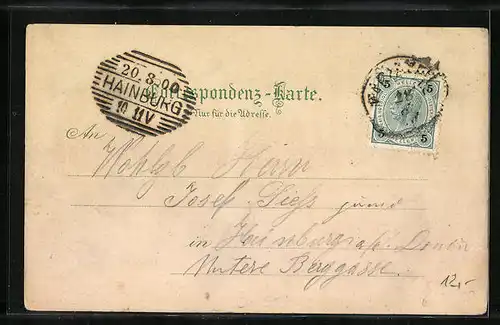 20.3.00
HAINBURG
Correspondenz-Karte.
Nur für die Adresse.
5 5
5 5
An
Wohlgb Herrn
Josef
in Hainburg a/d. Donau
Untere Berggasse.
12,-